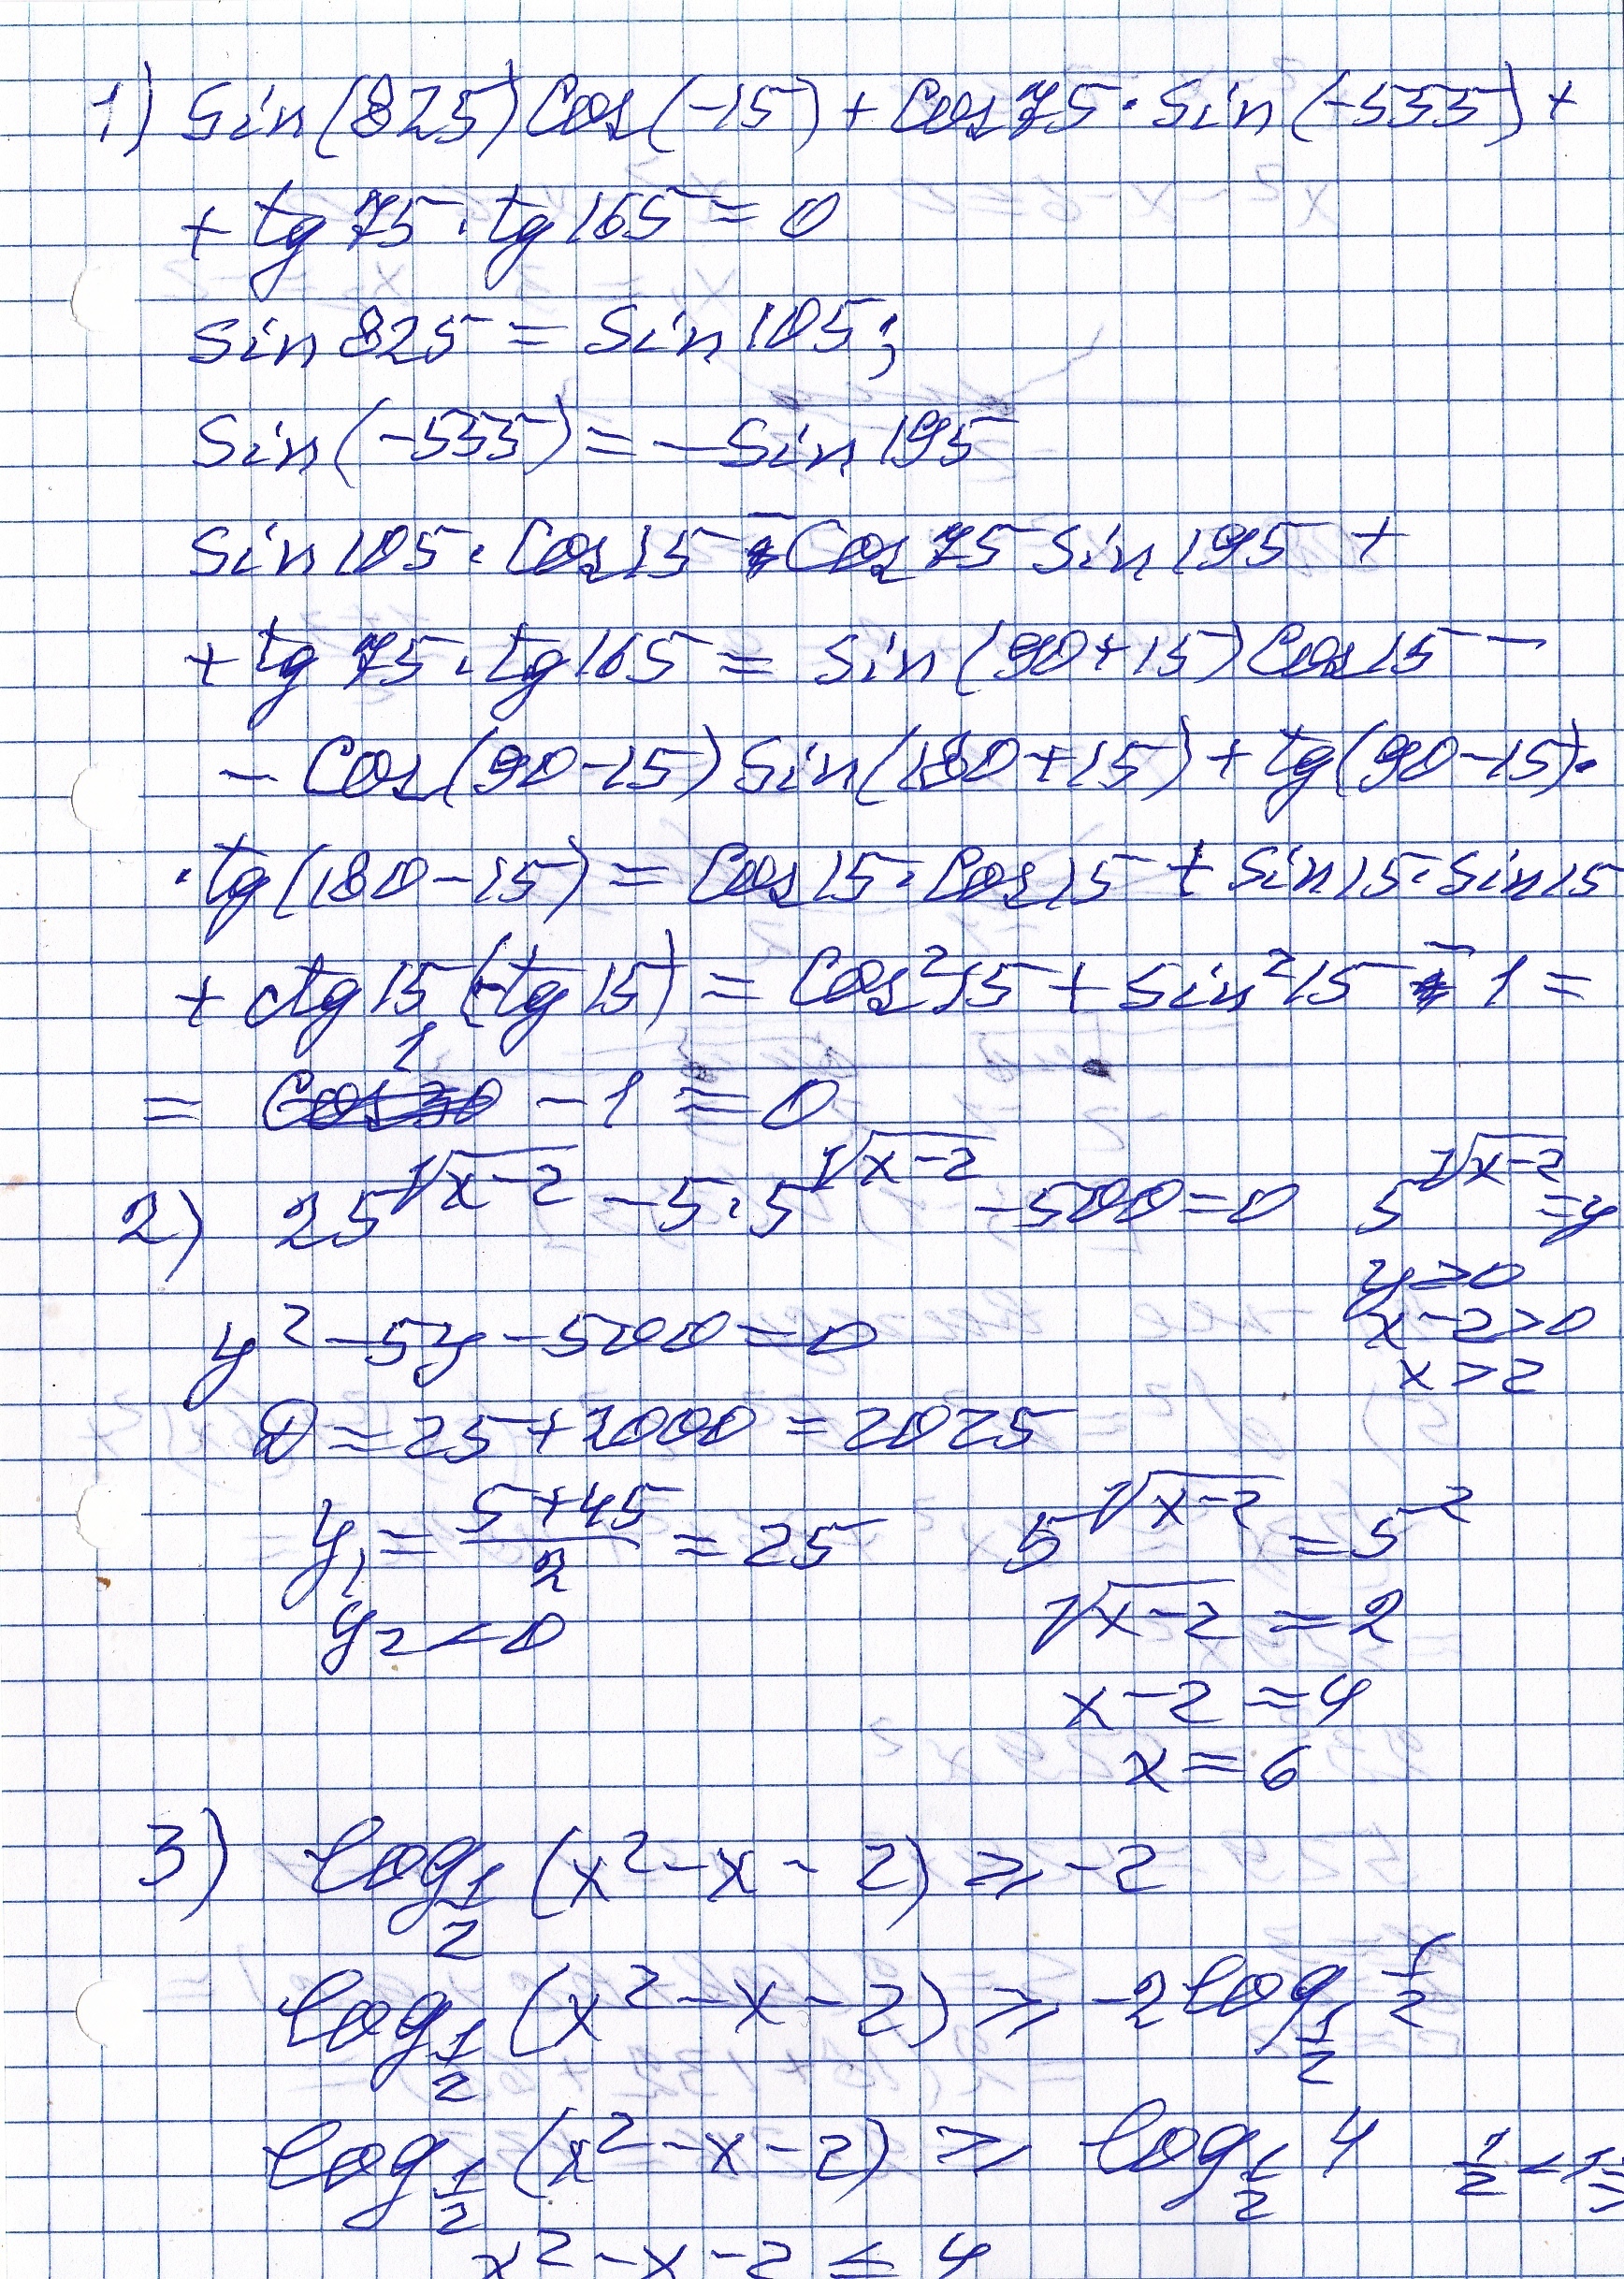 1) Sin(825)Cos(-15) + Cos75·Sin(-555) +
+ tg 75·tg 165 = 0
Sin 825 = Sin 105;
Sin(-555) = -Sin 195
Sin 105·Cos 15 - Cos 75 Sin 195 +
+ tg 75·tg 165 = Sin(90+15)Cos 15 -
- Cos(90-15)Sin(180+15) + tg(90-15)·
·tg(180-15) = Cos 15·Cos 15 + Sin 15·Sin 15
+ ctg 15 (-tg 15) = Cos² 15 + Sin² 15 - 1 =
= 1 - 1 = 0
2) 25^√(x-2) - 5·5^√(x-2) - 500 = 0 5^√(x-2) = y
y > 0
x-2 > 0
x > 2
y² - 5y - 500 = 0
D = 25 + 2000 = 2025
y₁ = (5+45)/2 = 25 5^√(x-2) = 5²
y₂ < 0 √(x-2) = 2
x - 2 = 4
x = 6
3) log_1/2 (x² - x - 2) ⩾ -2
log_1/2 (x² - x - 2) ⩾ -2 log_1/2 1/2
log_1/2 (x² - x - 2) ⩾ log_1/2 4 1/2 < 1
x² - x - 2 ≤ 4